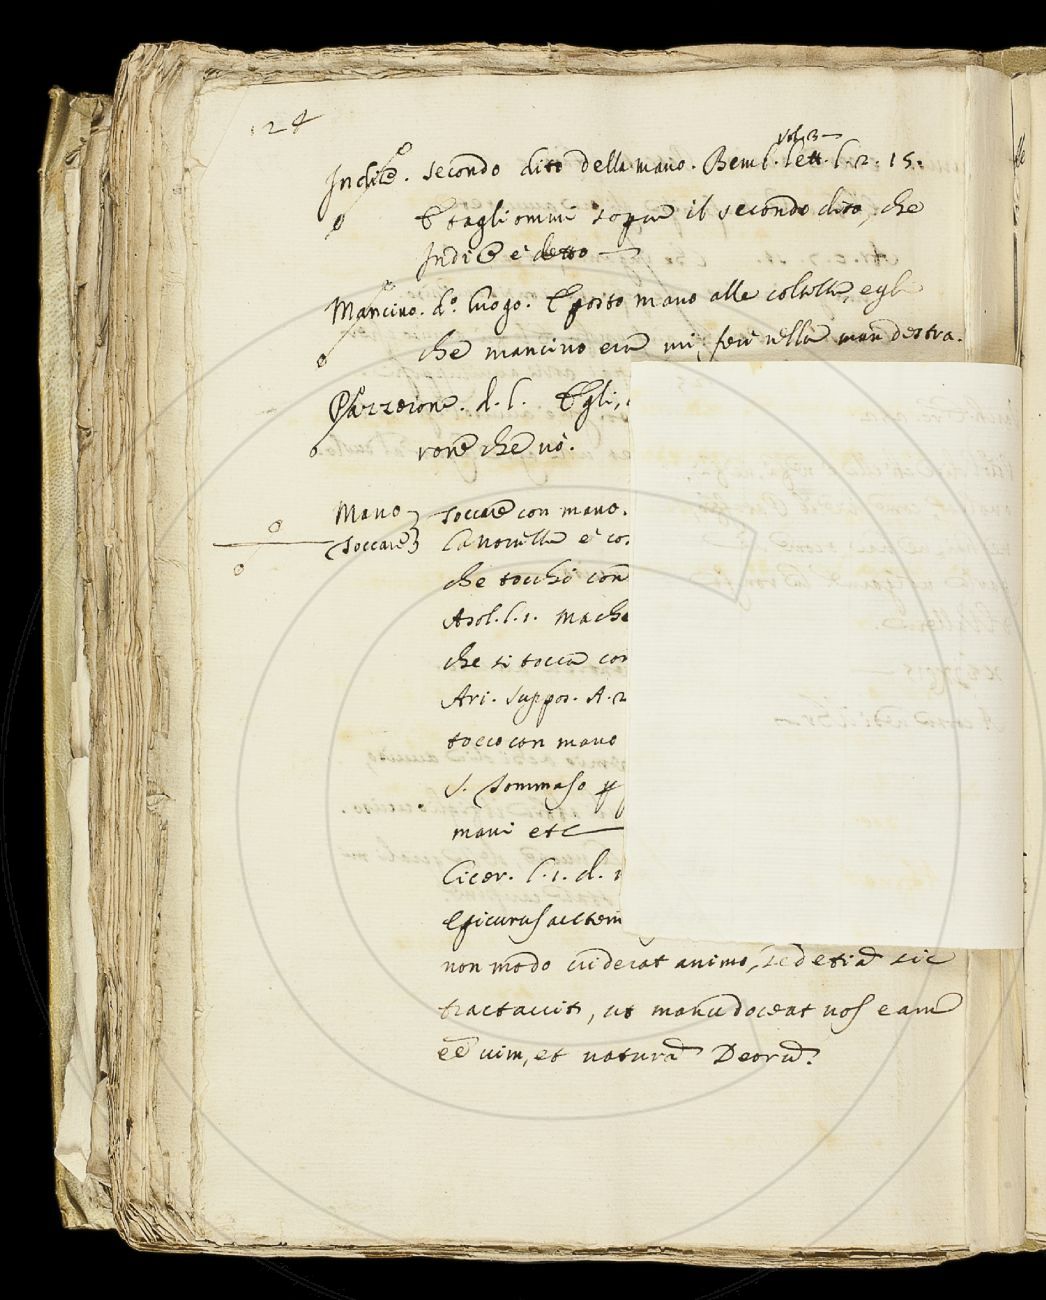 24
vol. 3
Indice. secondo dito della mano. Bemb. lett. l. 2. 15.
E tagliommi sopra il secondo dito, che
Indice è detto
Mancino. d.º luogo. E posto mano alle coltella, egli
che mancino era mi ferì nella man destra.
d. l. Egli,
rone che nò.
Mano
Toccare con mano.
Toccare
La novella è co
che tocchi con
Asol. l. 1. Ma che
che si tocca con
Ari. Suppos. A. 2
tocco con mano
S. Tommaso p
mani etc
Cicer. l. 1. d.
Epicurus autem
non modo viderat animo, sed etiã sic
tractavit, ut manu doceat nos eam
eẽ vim, et naturã Deorũ.